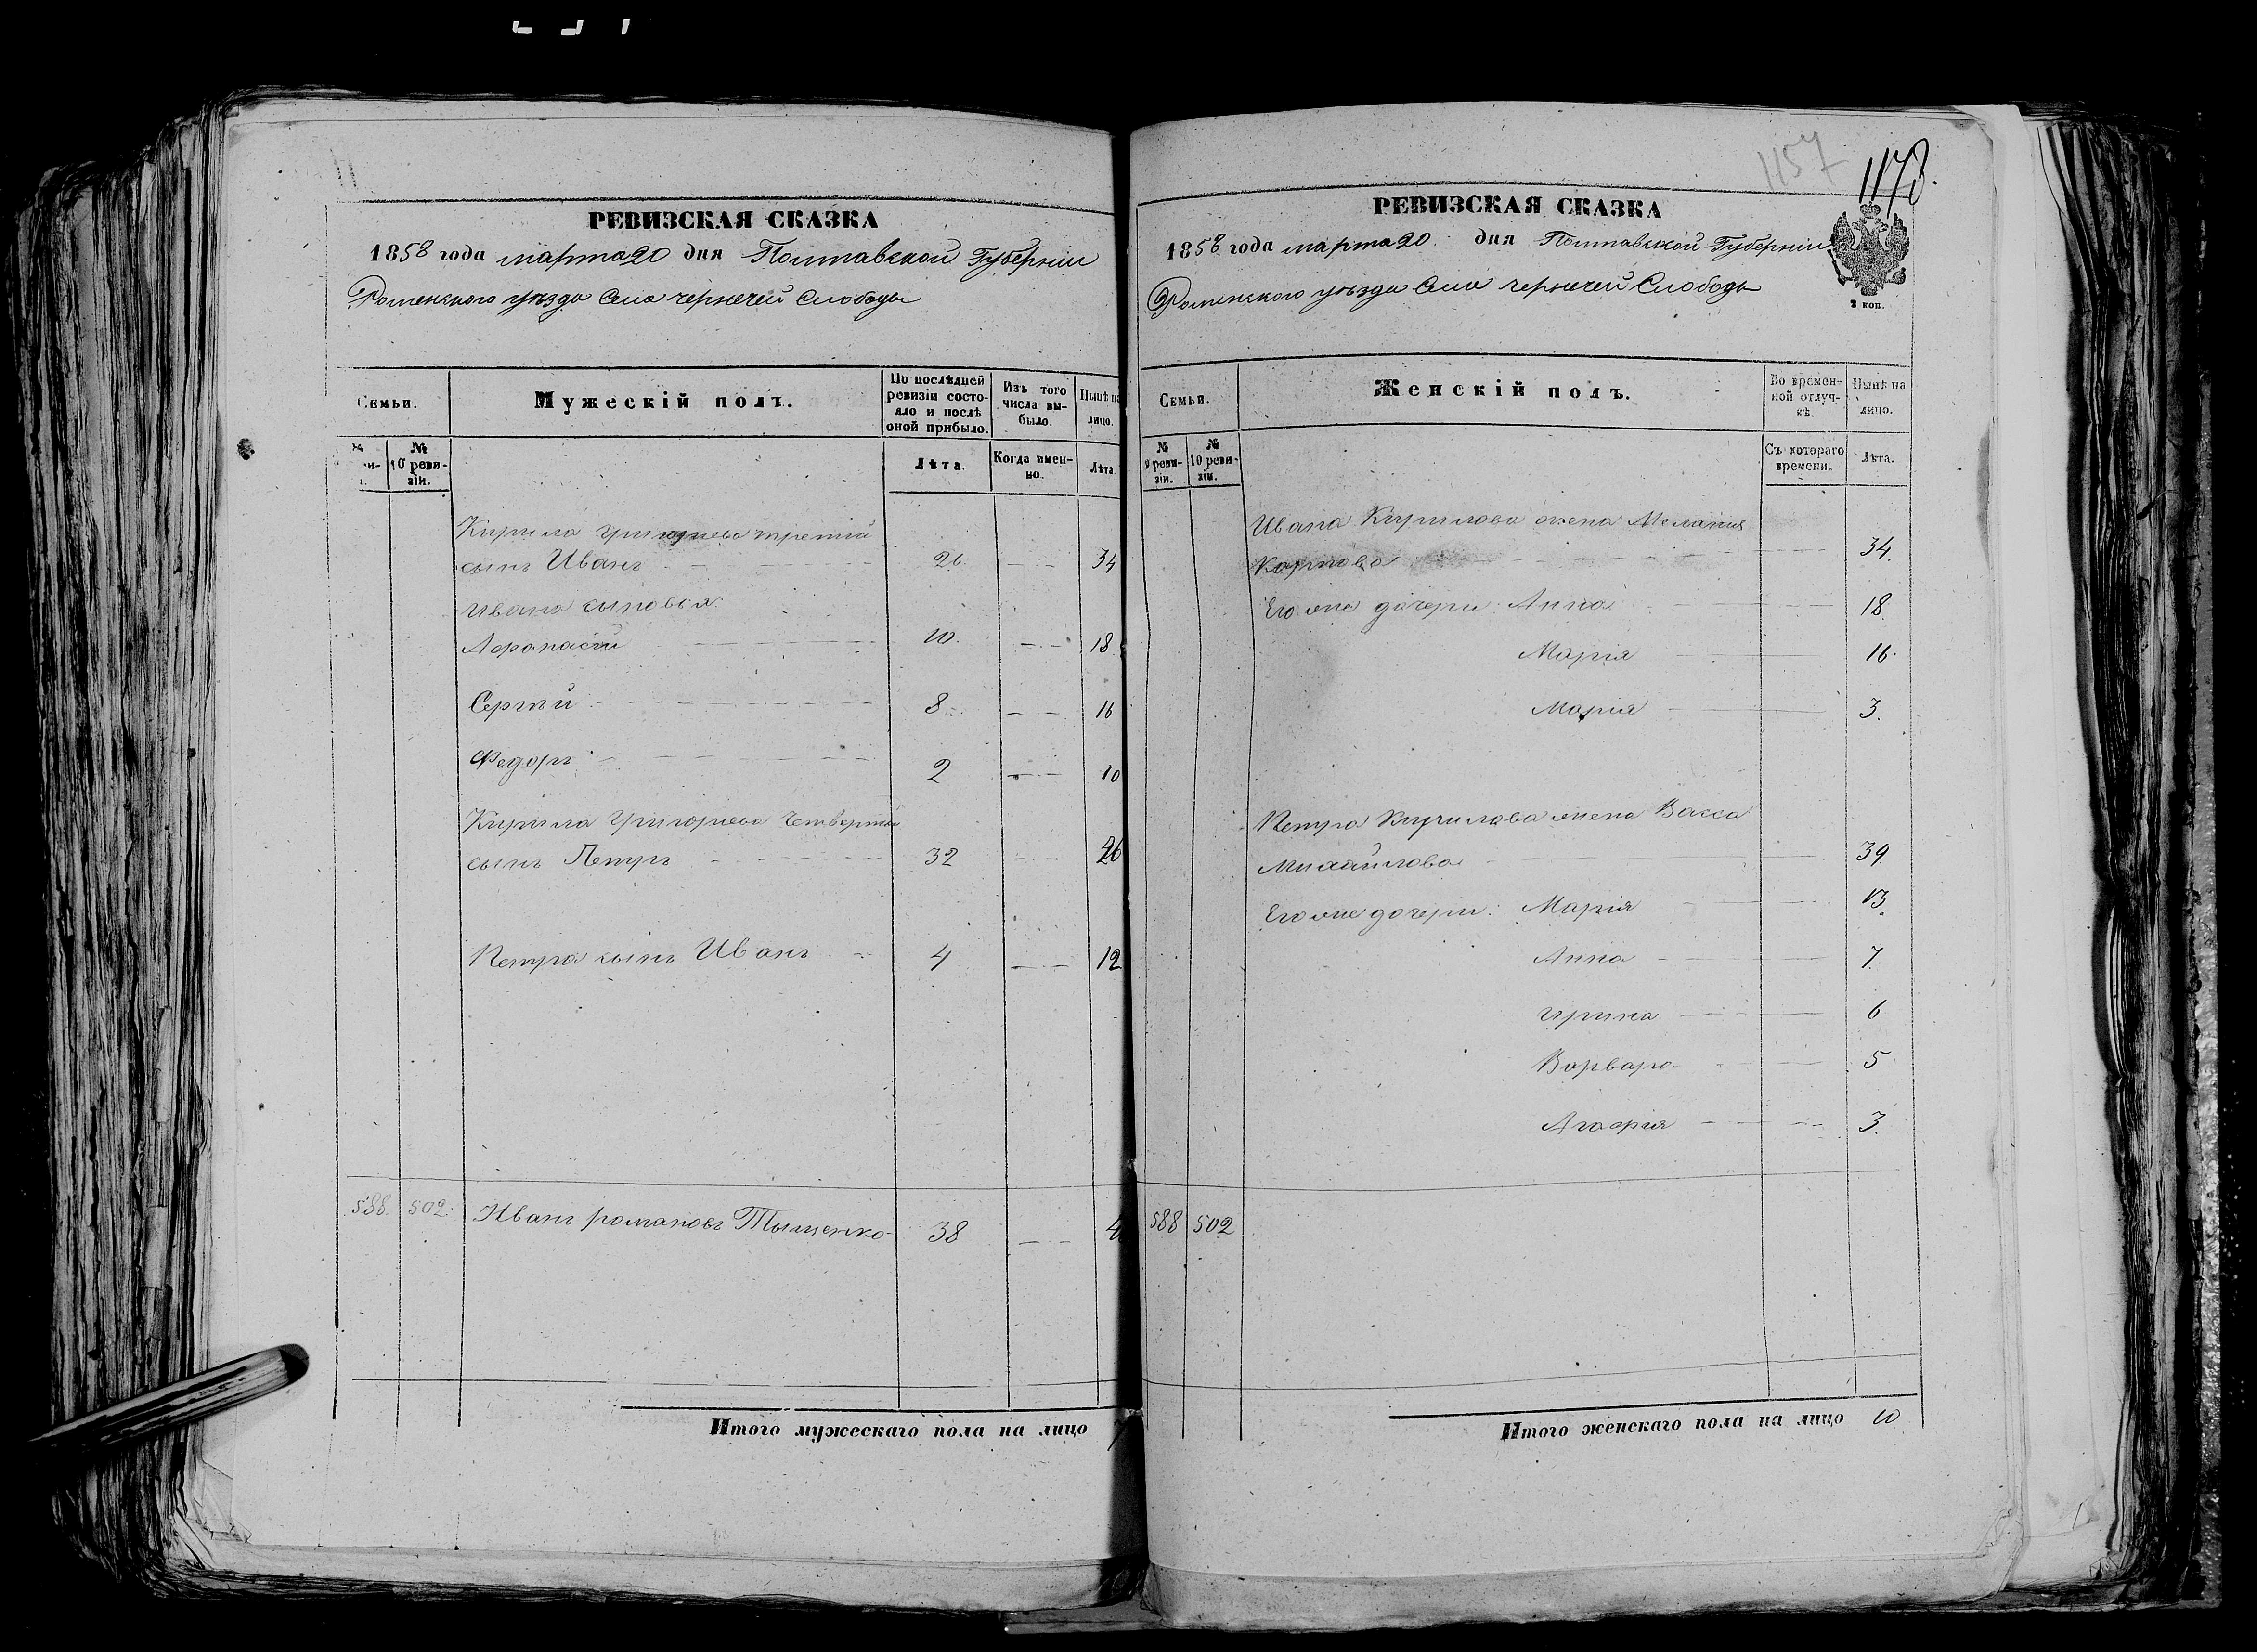 РЕВИЗСКАЯ СКАЗКА
1858 года марта 20 дня Полтавской Губерніи
Роменского уѣзда Села чернечей Слободы
Семьи.
Мужескій полъ.
По послѣдней ревизіи состояло и послѣ оной прибыло.
Изъ того числа выбыло.
Нынѣ на лицо.
№ 10 ревизіи.
Лѣта.
Когда именно.
Лѣта.
Кирила Григориева третій
сынъ Иванъ 26. 34
Ивана сыновья:
Афанасій 10. 18
Сергѣй 8. 16
Федоръ 2 10
Кирила Григориева четвертый
сынъ Петръ 32
Петра сынъ Иванъ 4 12
588. 502. Иванъ романовъ Тыщенко 38
Итого мужескаго пола на лицо
1157
1178.
РЕВИЗСКАЯ СКАЗКА
1858 года марта 20. дня Полтавской Губерніи
Роменского уѣзда Села чернечей Слободы
2 коп.
Семьи.
Женскій полъ.
Во временной отлучкѣ.
Нынѣ на лицо.
№ 9 ревизіи.
№ 10 ревизіи.
Съ котораго времени.
Лѣта.
Ивана Кирилова жена Мелания
Карпова 34.
Его же дочери: Анна 18.
Марія 16.
Марія 3.
Петра Кирилова жена Васса
Михайлова 39.
Его же дочери: Марія 13.
Анна 7.
Ирина 6
Варвара 5
Агафия 3.
588 502
Итого женскаго пола на лицо 10